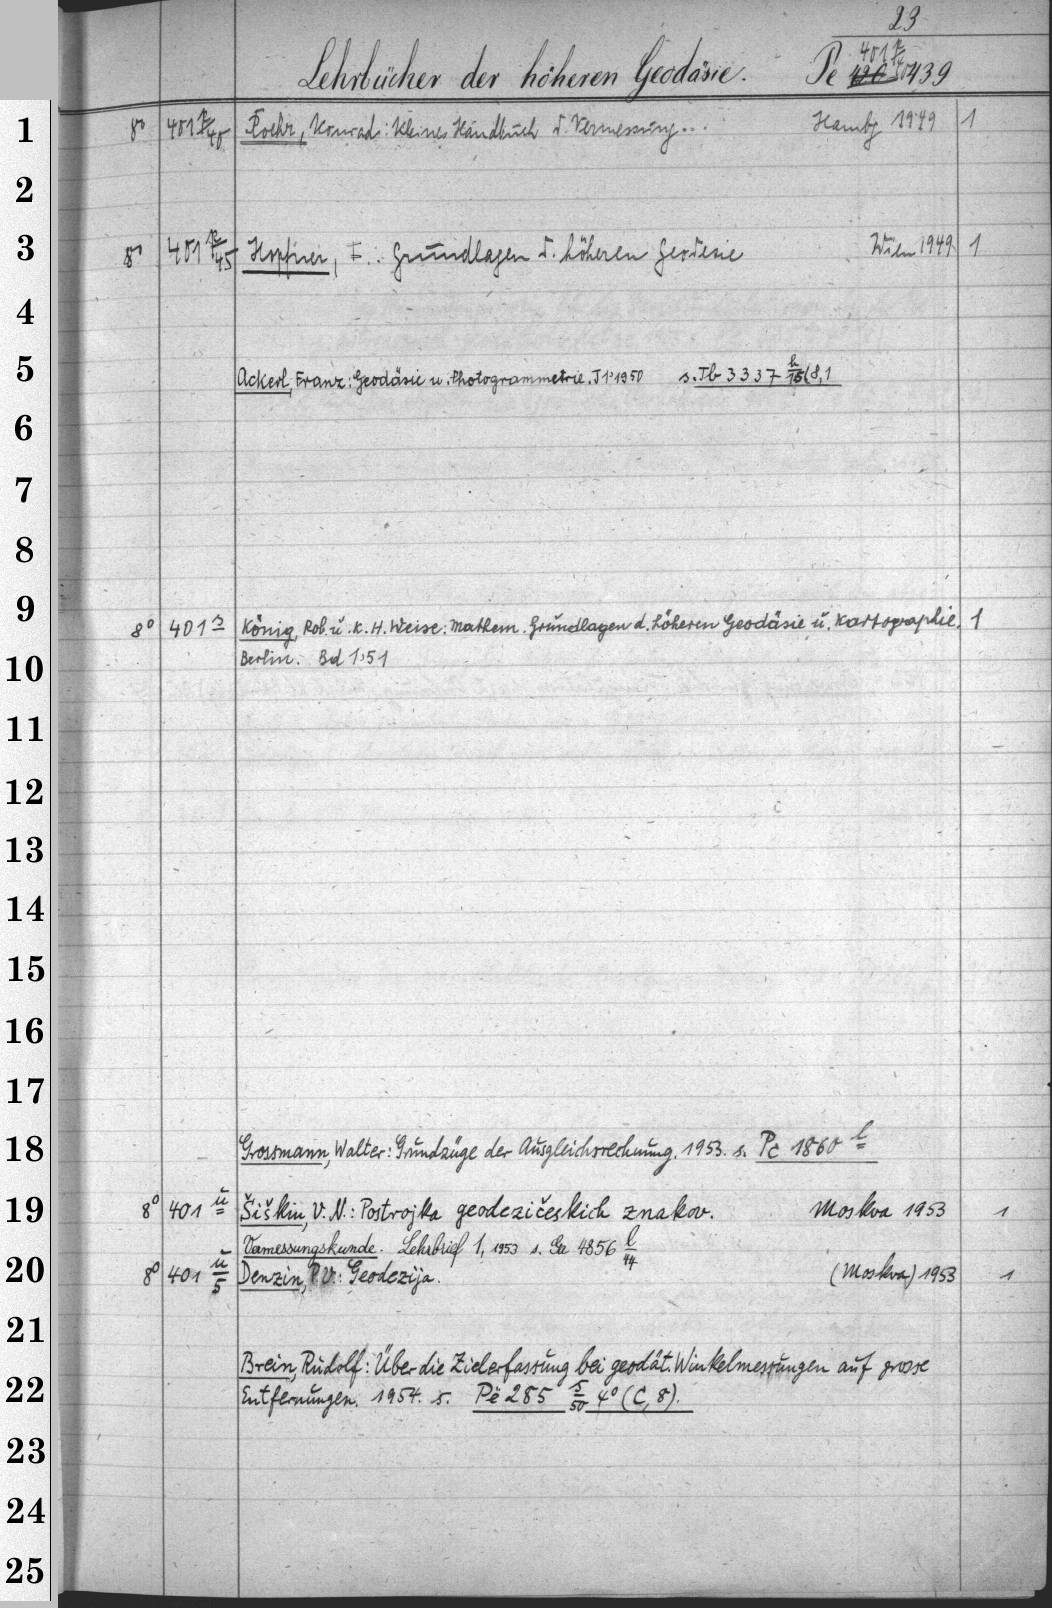 23
Lehrbücher der höheren Geodäsie. Pe 401 439
1 8° 401 Roehr, Konrad: Kleines Handbuch d. Vermessung... Hambg 1949 1
2
3 8° 401 Hopfner, F.: Grundlagen d. höheren Geodesie Wien 1949 1
4
5 Ackerl, Franz: Geodäsie u. Photogrammetrie. T 1. 1950 s. Tb 3337 h/15 (8,1
6
7
8
9 8° 401 s König, Rob. u. K. H. Weise: Mathem. Grundlagen d. höheren Geodäsie u. Kartographie. 1
10 Berlin. Bd 1.51
11
12
13
14
15
16
17
18 Grossmann, Walter: Grundzüge der Ausgleichsrechnung. 1953. s. Pc 1860 l
19 8° 401 u Šiškin, V. N.: Postrojka geodezičeskich znakov. Moskva 1953 1
Vermessungskunde. Lehrbrief 1, 1953 s. 4856 l/44
20 8° 401 u/5 Denzin, P. V.: Geodezija. (Moskva) 1953 1
21
Brein, Rudolf: Über die Zielerfassung bei geodät. Winkelmessungen auf grosse
22 Entfernungen. 1954. s. Pë 285 s/50 4° (C, 8).
23
24
25